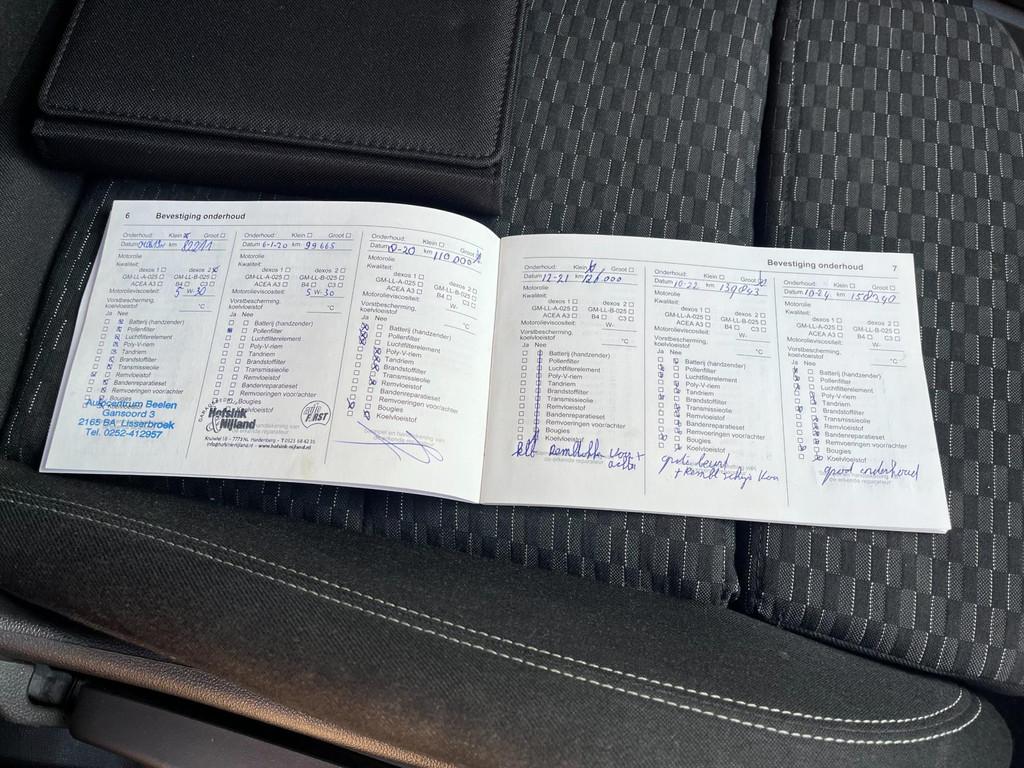 6 Bevestiging onderhoud
Onderhoud: Klein Groot
Datum km 82211
Motorolie
Kwaliteit:
dexos 1 dexos 2
GM-LL-A-025 GM-LL-B-025
ACEA A3 B4 C3
Motorolieviscositeit: 5 W- 30
Vorstbescherming,
koelvloeistof °C
Ja Nee
Batterij (handzender)
Pollenfilter
Luchtfilterelement
Poly-V-riem
Tandriem
Brandstoffilter
Transmissieolie
Remvloeistof
Bandenreparatieset
Remvoeringen voor/achter
Bougies
Autocentrum Beelen
Gansoord 3
2165 BA Lisserbroek
Tel. 0252-412957
Onderhoud: Klein Groot
Datum 6-1-20 km 99665
Motorolie
Kwaliteit:
dexos 1 dexos 2
GM-LL-A-025 GM-LL-B-025
ACEA A3 B4 C3
Motorolieviscositeit: 5 W- 30
Vorstbescherming,
koelvloeistof °C
Ja Nee
Batterij (handzender)
Pollenfilter
Luchtfilterelement
Poly-V-riem
Tandriem
Brandstoffilter
Transmissieolie
Remvloeistof
Bandenreparatieset
Remvoeringen voor/achter
Bougies
Koelvloeistof
Hofsink
& Nijland
FIRST
Onderhoud: Klein Groot
Datum 10-20 km 110000
Motorolie
Kwaliteit:
dexos 1 dexos 2
GM-LL-A-025 GM-LL-B-025
ACEA A3 B4 C3
Motorolieviscositeit: W-
Vorstbescherming,
koelvloeistof °C
Ja Nee
Batterij (handzender)
Pollenfilter
Luchtfilterelement
Poly-V-riem
Tandriem
Brandstoffilter
Transmissieolie
Remvloeistof
Bandenreparatieset
Remvoeringen voor/achter
Bougies
Koelvloeistof
Bevestiging onderhoud 7
Onderhoud: Klein Groot
Datum 12-21 km 126000
Motorolie
Kwaliteit:
dexos 1 dexos 2
GM-LL-A-025 GM-LL-B-025
ACEA A3 B4 C3
Motorolieviscositeit: W-
Vorstbescherming,
koelvloeistof °C
Ja Nee
Batterij (handzender)
Pollenfilter
Luchtfilterelement
Poly-V-riem
Tandriem
Brandstoffilter
Transmissieolie
Remvloeistof
Bandenreparatieset
Remvoeringen voor/achter
Bougies
Koelvloeistof
klb Remblokken voor +
achter
Onderhoud: Klein Groot
Datum 10-22 km 139843
Motorolie
Kwaliteit:
dexos 1 dexos 2
GM-LL-A-025 GM-LL-B-025
ACEA A3 B4 C3
Motorolieviscositeit: W-
Vorstbescherming,
koelvloeistof °C
Ja Nee
Batterij (handzender)
Pollenfilter
Luchtfilterelement
Poly-V-riem
Tandriem
Brandstoffilter
Transmissieolie
Remvloeistof
Bandenreparatieset
Remvoeringen voor/achter
Bougies
Koelvloeistof
grote beurt
+ Rembl schijf Voor
Onderhoud: Klein Groot
Datum 10-24 km 158340
Motorolie
Kwaliteit:
dexos 1 dexos 2
GM-LL-A-025 GM-LL-B-025
ACEA A3 B4 C3
Motorolieviscositeit: W-
Vorstbescherming,
koelvloeistof °C
Ja Nee
Batterij (handzender)
Pollenfilter
Luchtfilterelement
Poly-V-riem
Tandriem
Brandstoffilter
Transmissieolie
Remvloeistof
Bandenreparatieset
Remvoeringen voor/achter
Bougies
Koelvloeistof
groot onderhoud